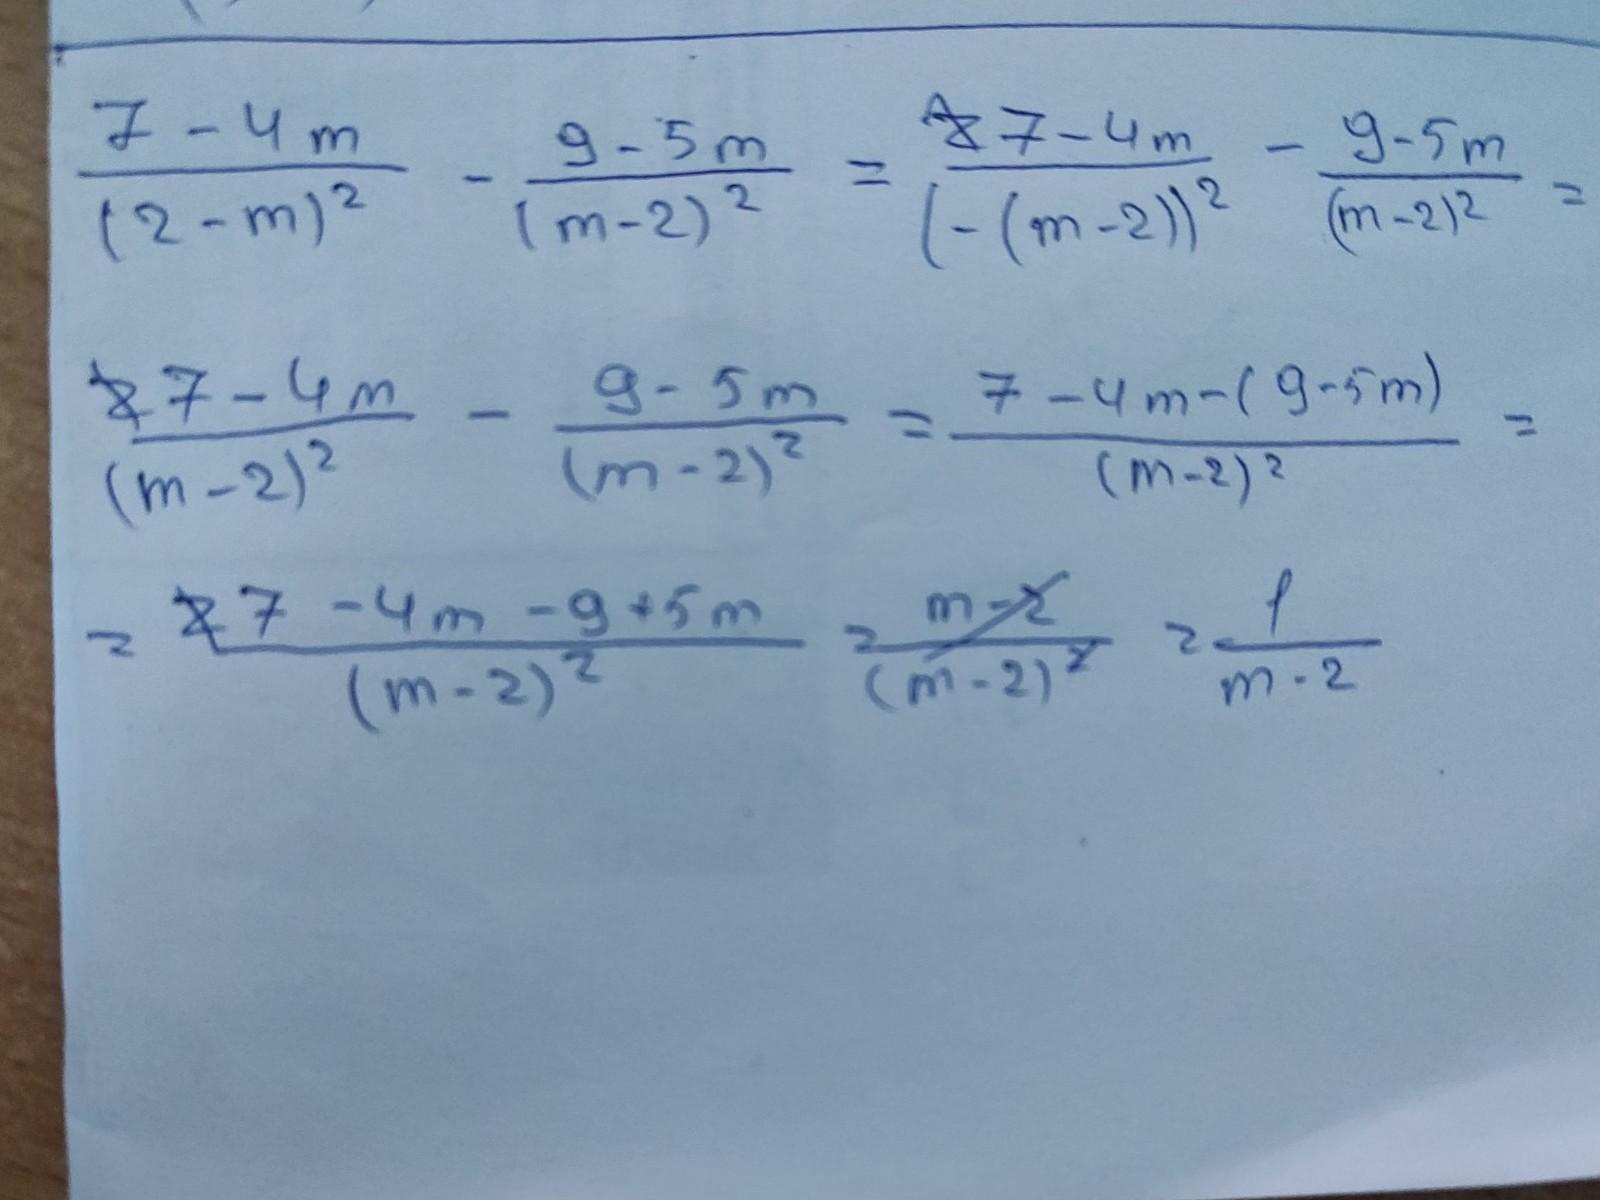 7 - 4m / (2 - m)² - 9 - 5m / (m - 2)² = 7 - 4m / (-(m - 2))² - 9 - 5m / (m - 2)² =
7 - 4m / (m - 2)² - 9 - 5m / (m - 2)² = 7 - 4m - (9 - 5m) / (m - 2)² =
= 7 - 4m - 9 + 5m / (m - 2)² = m - 2 / (m - 2)² = 1 / m - 2